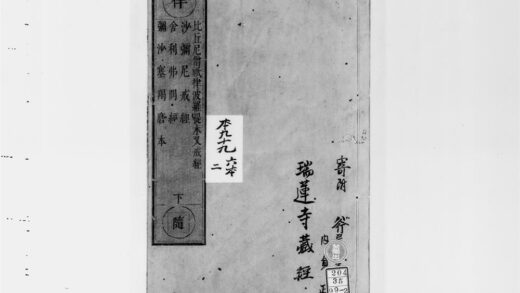 律
比丘尼僧祇律波羅提木叉戒經
沙彌尼戒經
舍利弗問經
彌沙塞羯磨本
下
隨
本九十九
六本
二
瑞蓮寺藏經
寄附
内
204
35